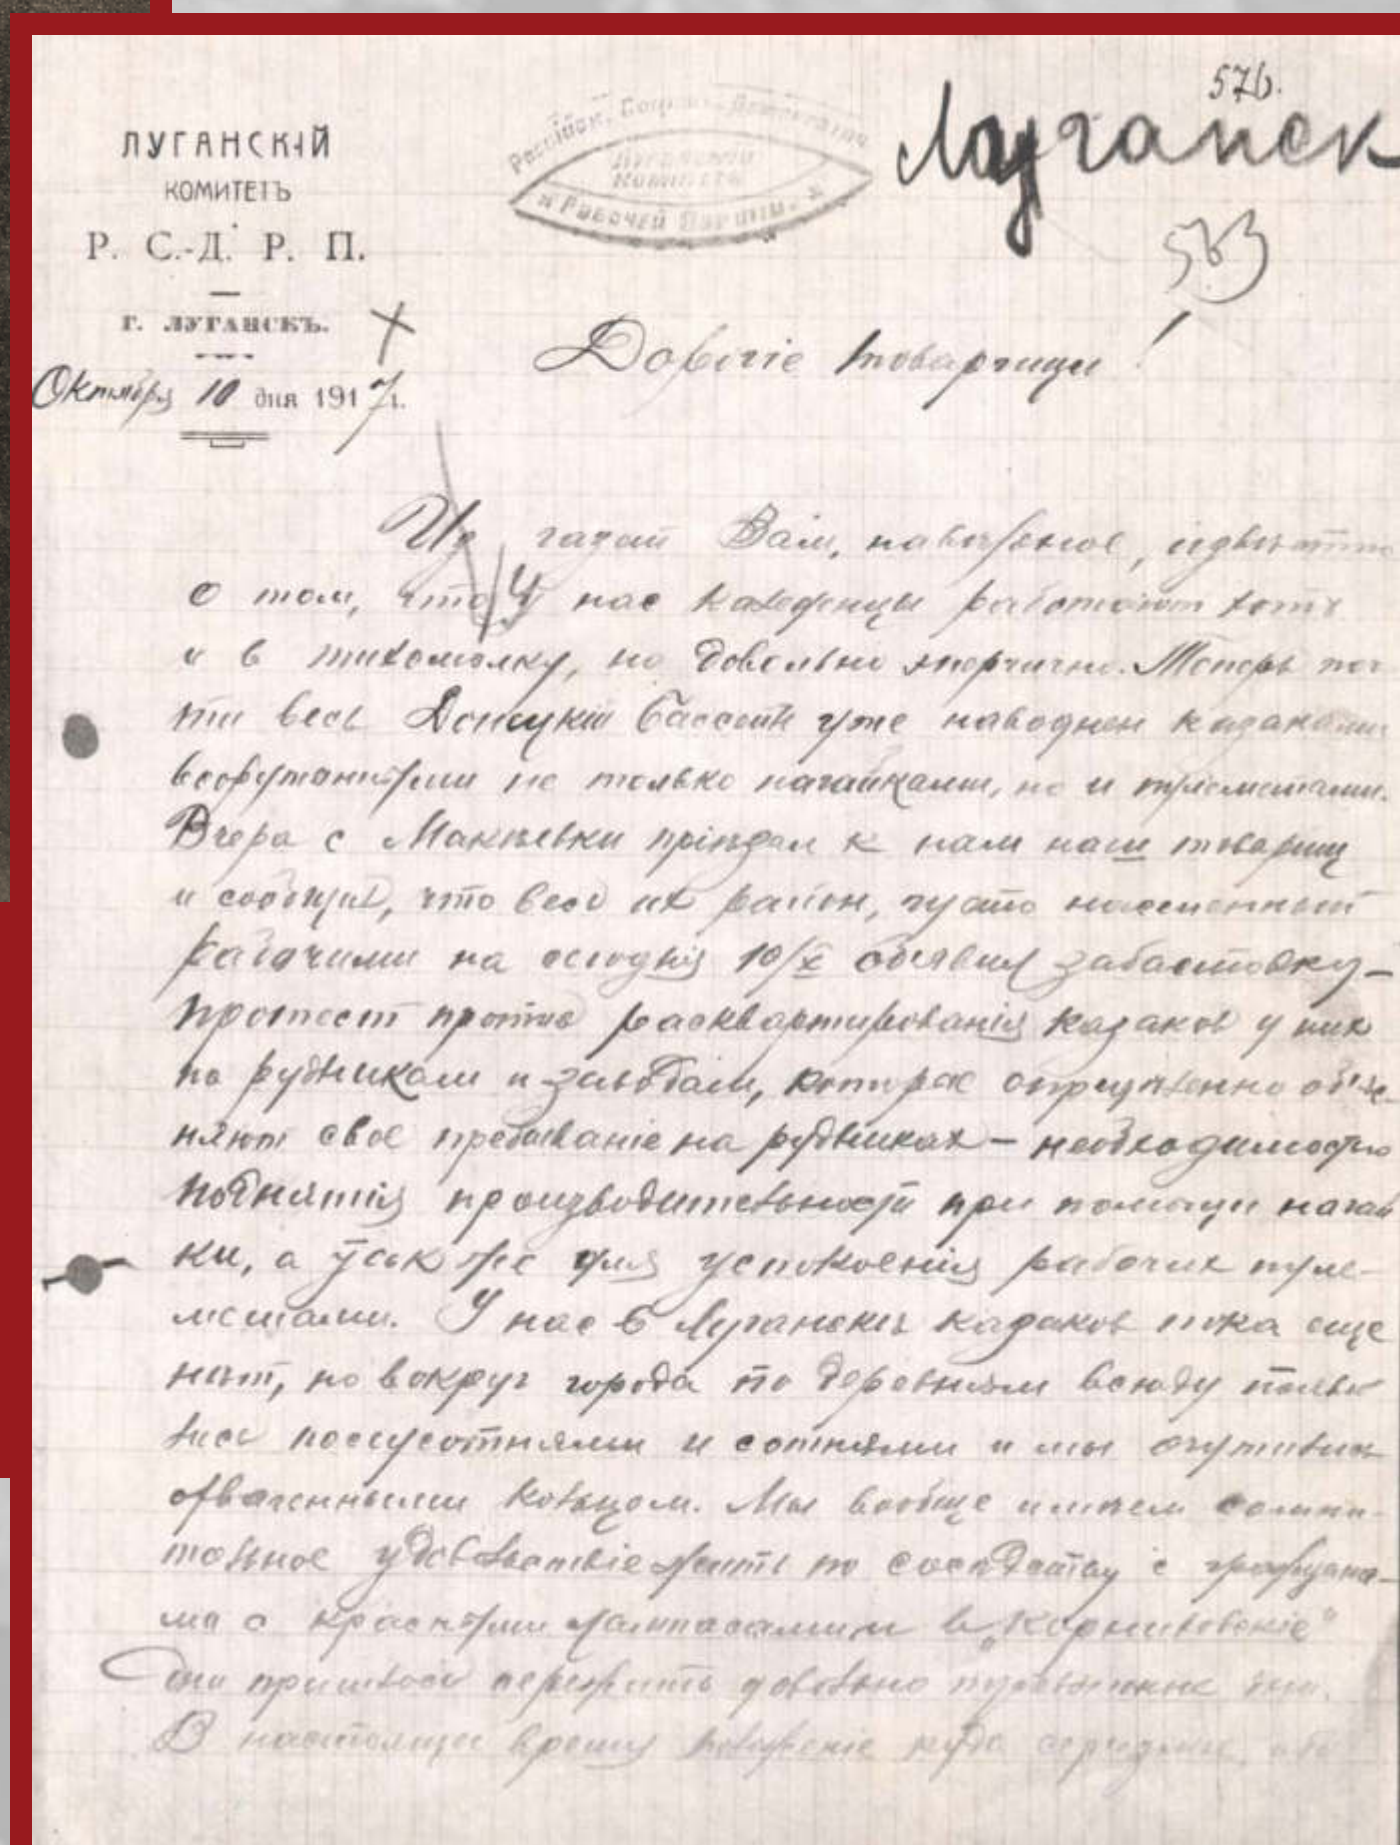 576.
Луганск
ЛУГАНСКІЙ
КОМИТЕТЪ
Р. С.-Д. Р. П.
Г. ЛУГАНСКЪ.
Октября 10 дня 1917 г.
Россійск. Социал-Демократич.
Луганскій
Комитетъ
Рабочей Партіи
Дорогіе товарищи!
Из газет Вам, навѣрное, извѣстно
о том, что у нас каледенцы работают хотя
и в тихомолку, но довольно энергично. Теперь поч
ти весь Донецкій бассейн уже наводнен казаками
вооруженными не только нагайками, но и пулеметами.
Вчера с Макѣевки пріѣздал к нам наш товарищ
и сообщил, что весь их район, густо населенный
рабочими на сегодня 10/X объявил забастовку-
протест против расквартированія казаков у них
по рудникам и заводам, которые объяс
няют свое пребываніе на рудниках — необходимостью
поднятія производительности при помощи нагай
ки, а для успокоенія рабочих пуле-
метами. У нас в Луганскѣ казаков пока еще
нѣт, но вокруг города по деревням всюду
полусотнями и сотнями и мы очутились
охваченными кольцом. Мы вообще имѣем сомни-
тельное удовольствіе жить по сосѣдству с гражданa-
ми с красными лампасами и в „Корниловскіе"
дни пришлось пережить довольно
В настоящее время положеніе